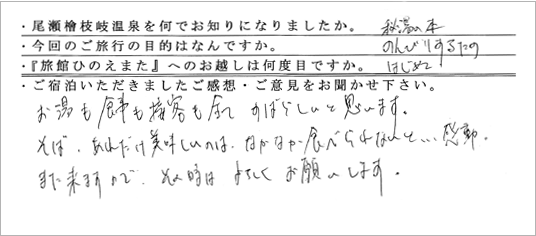 ・尾瀬檜枝岐温泉を何でお知りになりましたか。 秘湯の本
・今回のご旅行の目的はなんですか。 のんびりするため
・『旅館ひのえまた』へのお越しは何度目ですか。 はじめて
・ご宿泊いただきましたご感想・ご意見をお聞かせ下さい。
お湯も食事も接客も全てすばらしいと思います。
そば、あれだけ美味しいのは、なかなか食べられないと…感動。
また来ますので、その時はよろしくお願いします。